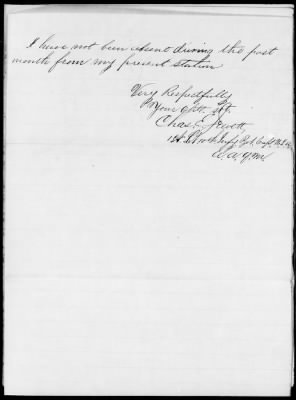 I have not been absent during the past
month from my present station
Very Respectfully
Your Obt. Svt.
Chas E. Jewett
1st Lt 10th Infy Bvt Capt U.S.A.
A.A.Q.M.